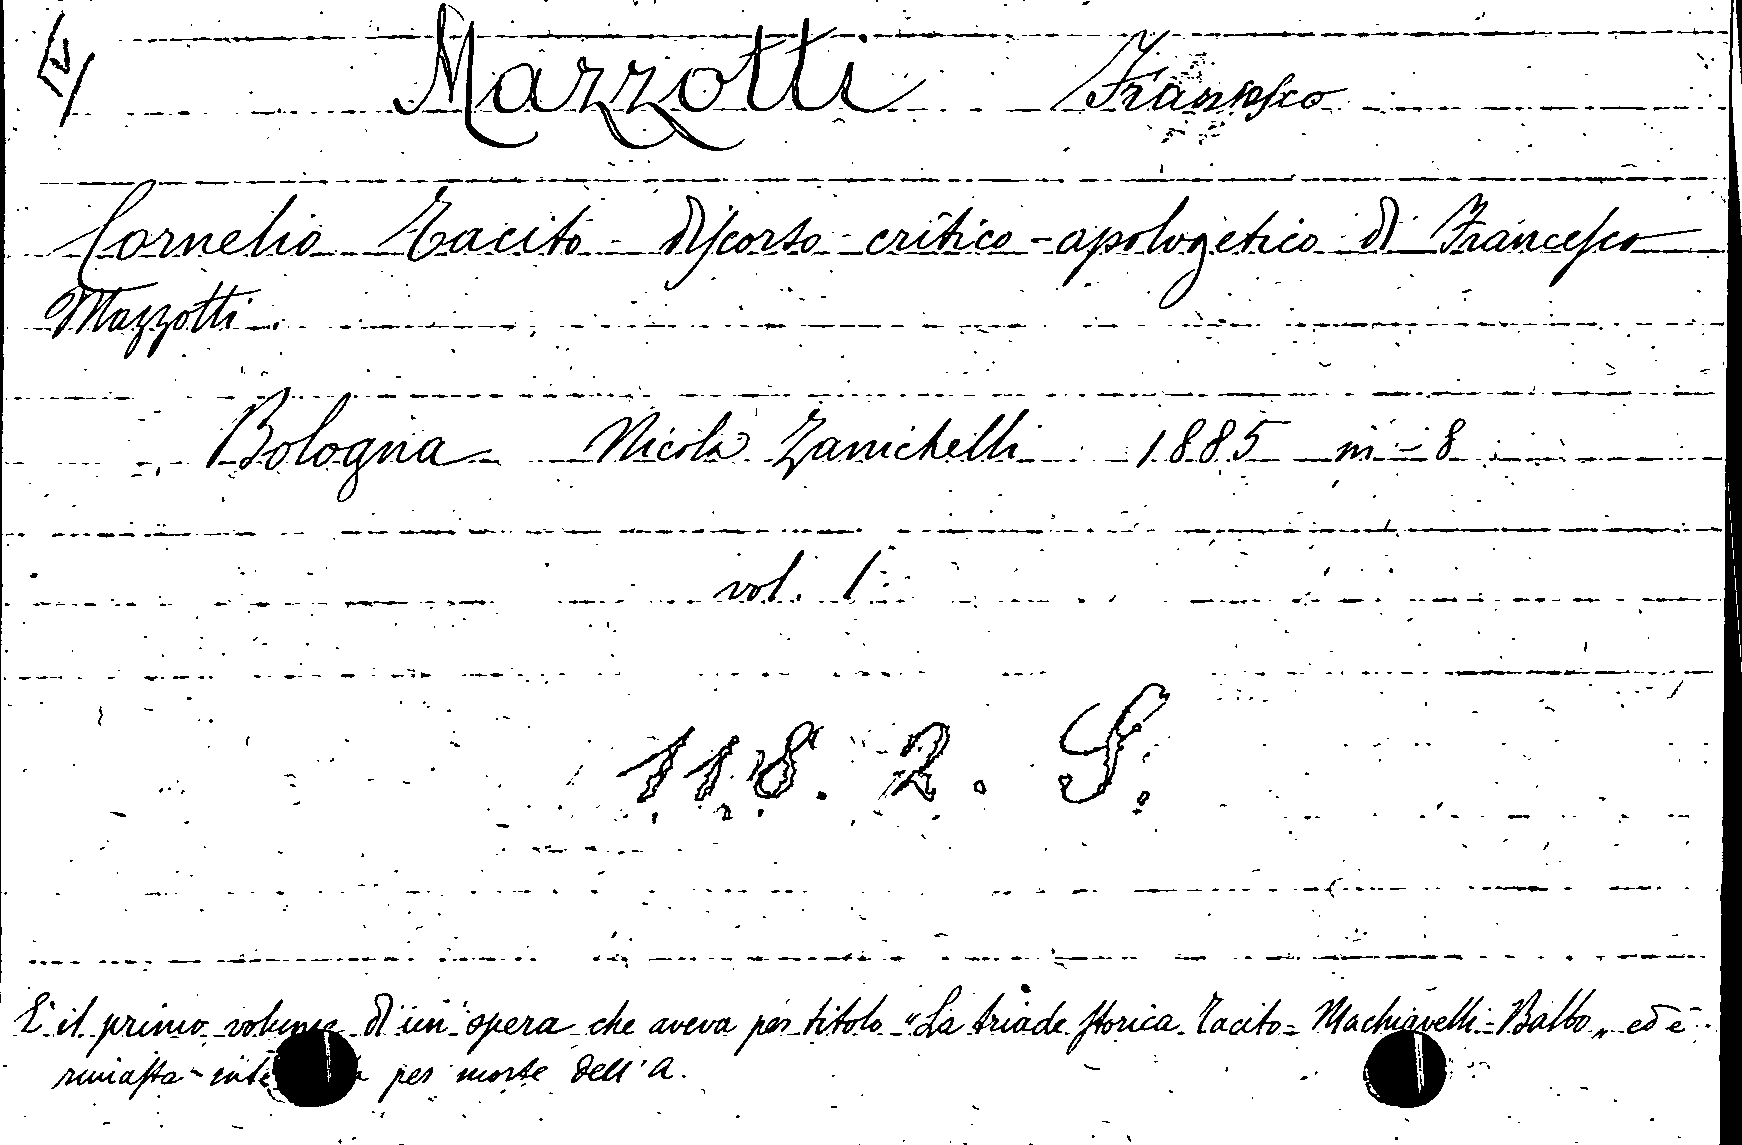 Mazzotti Francesco
Cornelio Tacito - discorso critico - apologetico di Francesco
Mazzotti.
Bologna Nicola Zanichelli 1885 in-8
vol. 1
118. 2. S.
E' il primo volume di un'opera che aveva per titolo "La triade storica Tacito - Machiavelli - Balbo" ed è
rimasta per morte dell'A.